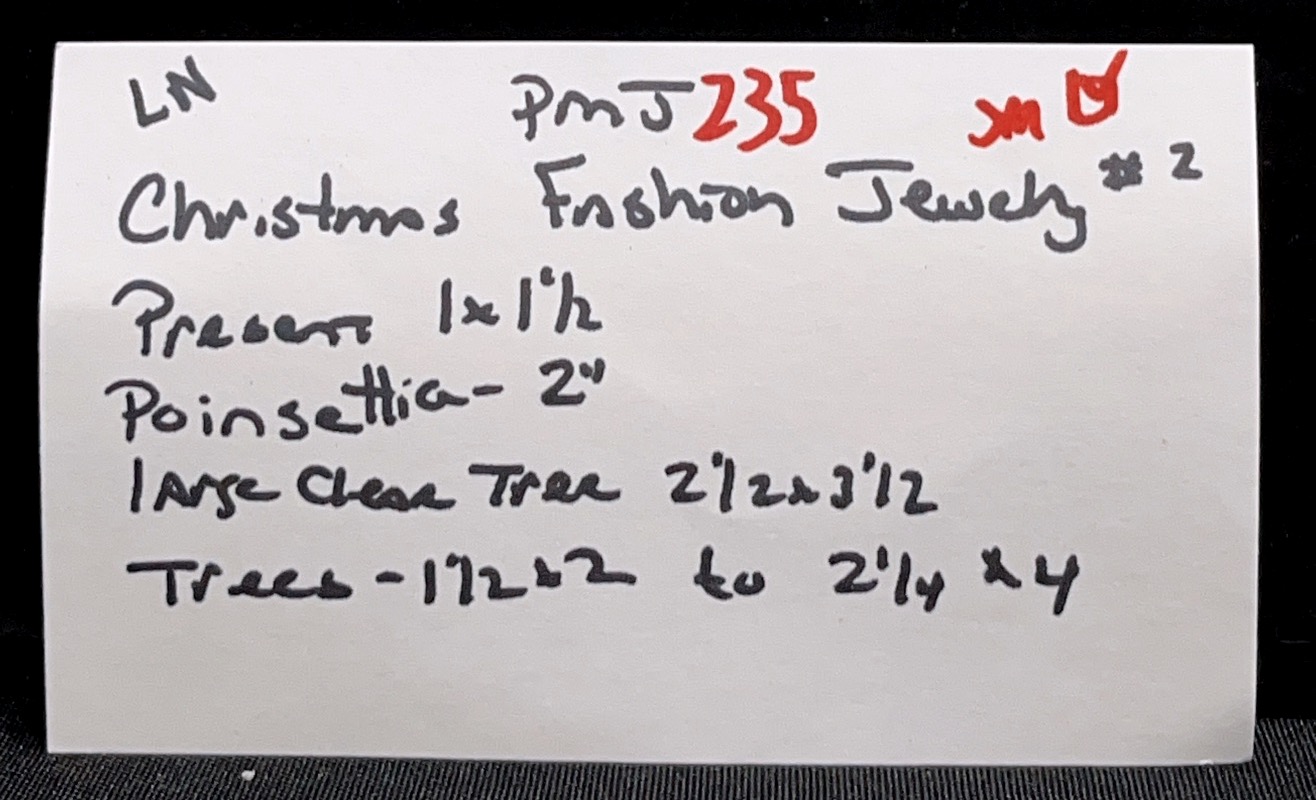 LN PMJ 235 SM
Christmas Fashion Jewelry #2
Present 1x1 1/2
Poinsettia - 2"
large Clear Tree 2 1/2 x 3 1/2
Trees - 1 1/2 x 2 to 2 1/4 x 4